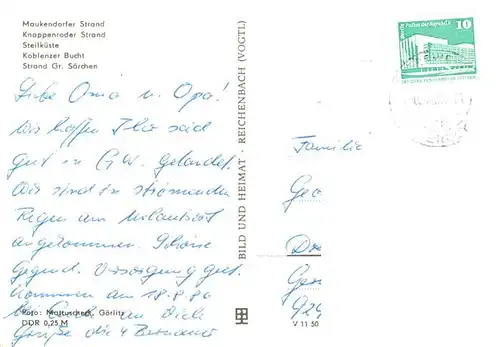 Maukendorfer Strand
Knappenroder Strand
Steilküste
Koblenzer Bucht
Strand Gr. Särchen
Liebe Oma u. Opa!
Wir hoffen Ihr seid
gut in G.W. gelandet.
Wir sind in strömenden
Regen am Urlaubsort
angekommen. Schöne
Gegend. Versorgung gut.
Kommen am 18.8.86
bei an Dich
Grüße die 4
Foto: Mattuscheck, Görlitz
DDR 0,25 M
BILD UND HEIMAT · REICHENBACH (VOGTL)
V 11 50
Berlin Palast der Republik
10
Familie
Geo
Dre